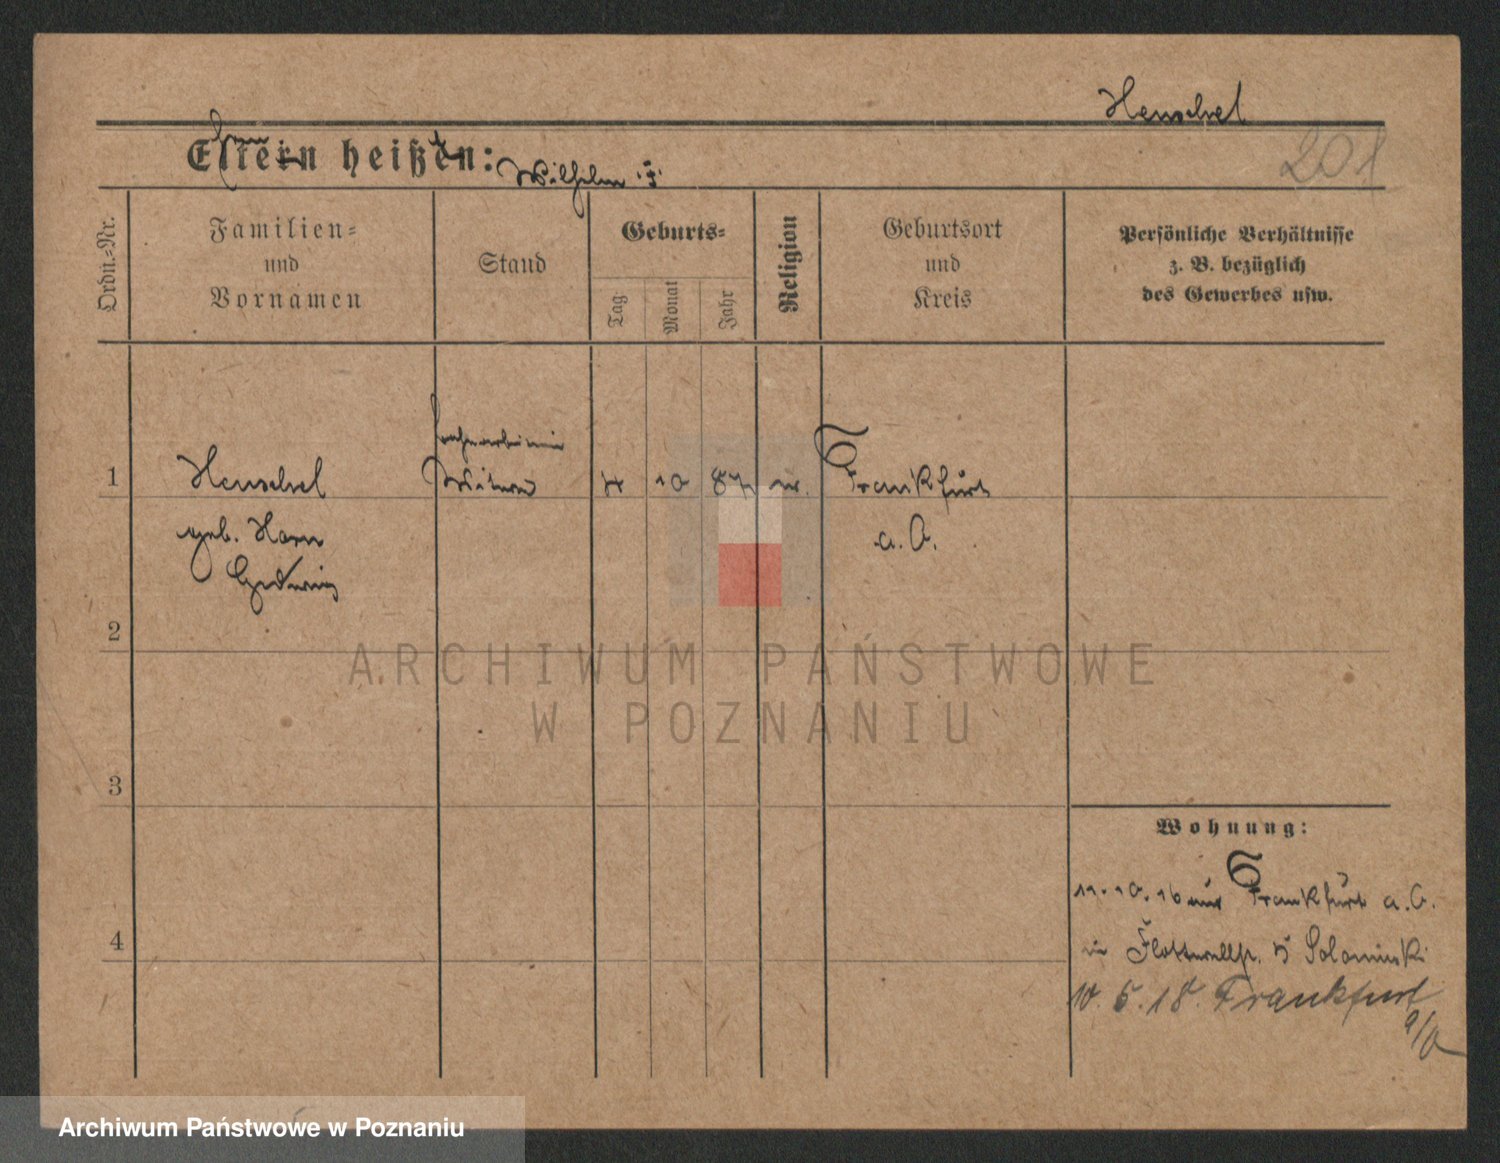 Henschel
201
Eltern heißen: Wilhelm
Ordn.-Nr.
Familien=
und
Vornamen
Stand
Geburts=
Tag
Monat
Jahr
Religion
Geburtsort
und
Kreis
Persönliche Verhältnisse
z. B. bezüglich
des Gewerbes usw.
1
Henschel
geb. Horn
Hedwig
Witwe
4 10 87
Frankfurt
a. O.
2
3
4
Wohnung:
11.10.16 aus Frankfurt a. O.
in Flottwellstr. 5 Solominski
10.5.18. Frankfurt
a/O
ARCHIWUM PAŃSTWOWE
W POZNANIU
Archiwum Państwowe w Poznaniu